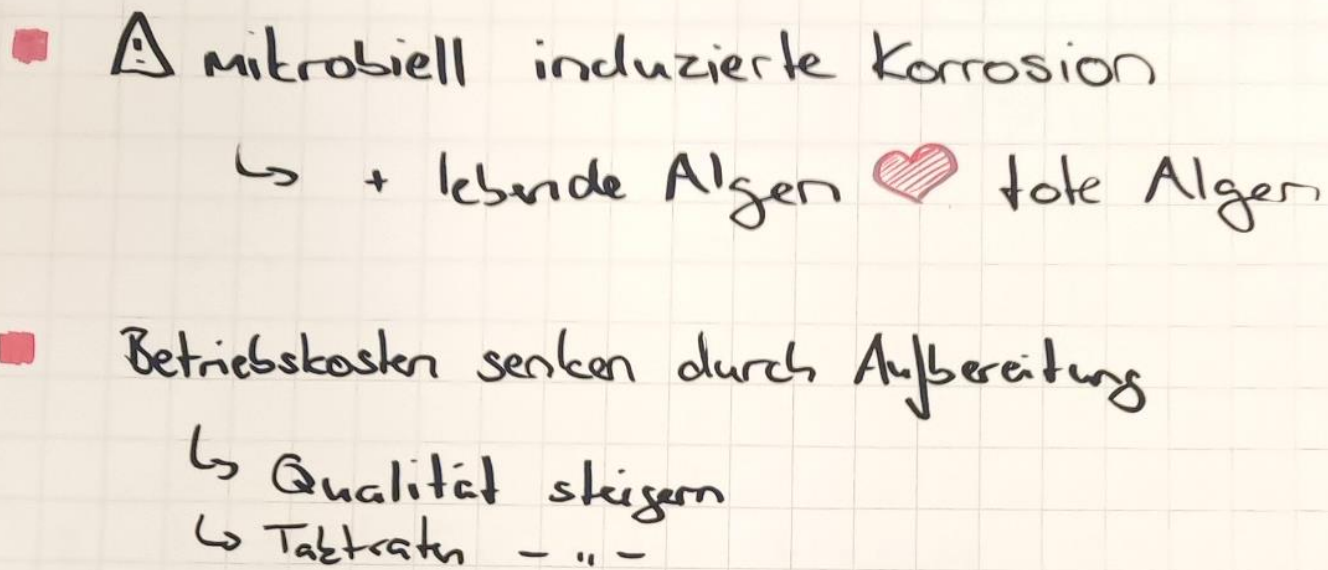 ⚠ mikrobiell induzierte Korrosion
↳ + lebende Algen ♥ tote Algen
Betriebskosten senken durch Aufbereitung
↳ Qualität steigern
↳ Taktraten - " -